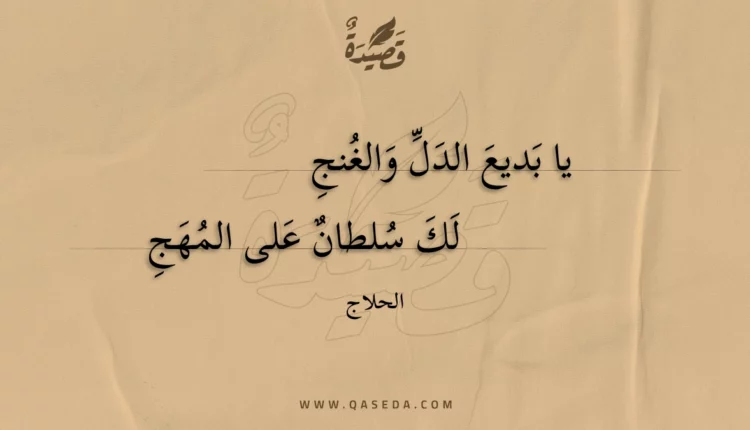 قَصِيدَةٌ
يا بَديعَ الدَلِّ وَالغُنجِ
لَكَ سُلطانٌ عَلى المُهَجِ
الحلاج
WWW.QASEDA.COM